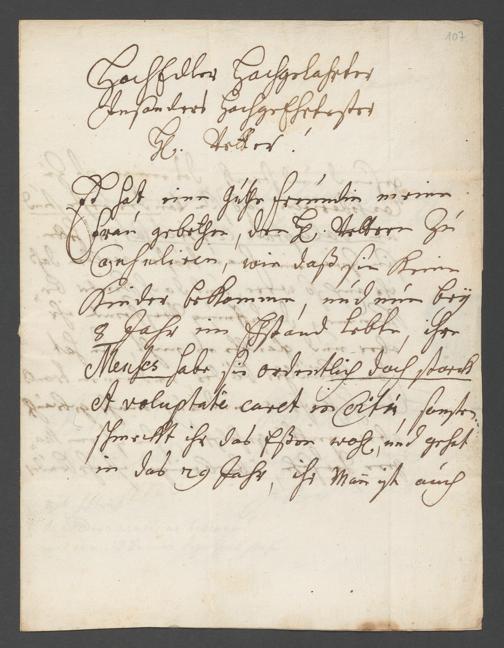 107
HochEdler Hochgelahrter
Insonders HochgeEhrtester
H. Vetter!
Es hat eine guthe freundin meine
frau gebethen, den H. Vettern zu
Consuliren, wie daß sie keine
Kinder bekomme, und nun bey
8 Jahr im Ehstand lebte, ihre
Menses habe sie ordentlich doch starck
et voluptate caret in Coitu, sonsten
schmeckt ihr das Eßen wohl, und gehet
in das 29 Jahr, ihr Man ist auch